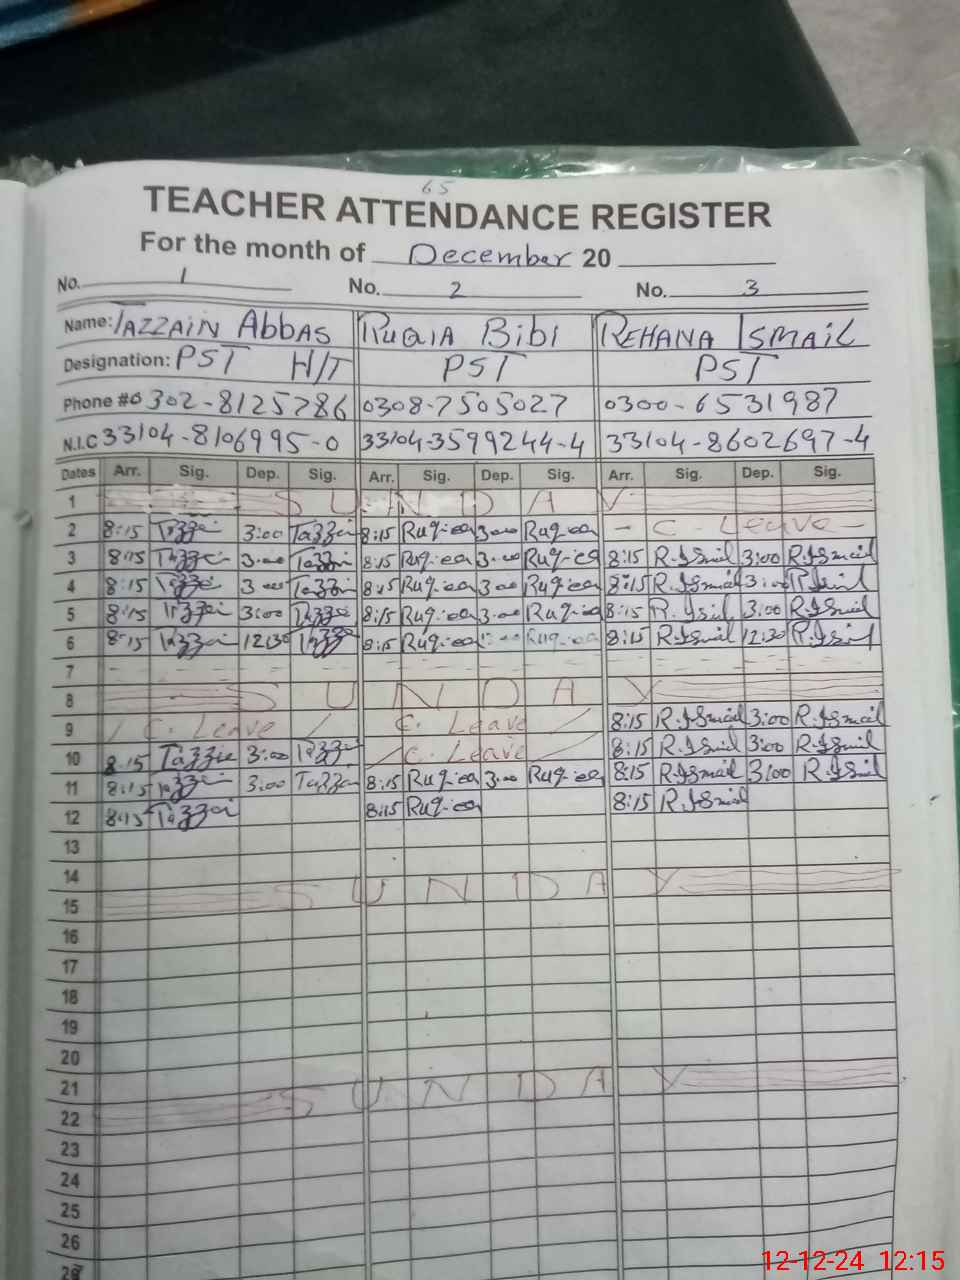 65
TEACHER ATTENDANCE REGISTER
For the month of December 20
No. 1 No. 2 No. 3
Name: TAZZAIN ABBAS RUQIA BIBI REHANA ISMAIL
Designation: PST H/T PST PST
Phone #0302-8125786 0308-7505027 0300-6531987
N.I.C 33104-8106995-0 33104-3599244-4 33104-8602697-4
Dates Arr. Sig. Dep. Sig. Arr. Sig. Dep. Sig. Arr. Sig. Dep. Sig.
1 SUNDAY
2 8:15 3:00 8:15 Ruqiea 3:00 Ruqiea - C. Leave -
3 8:15 3:00 8:15 Ruqiea 3:00 Ruqiea 8:15 R.ISmail 3:00 R.ISmail
4 8:15 3:00 8:15 Ruqiea 3:00 Ruqiea 8:15 R.ISmail 3:00
5 8:15 3:00 8:15 Ruqiea 3:00 Ruqiea 8:15 3:00 R.ISmail
6 8:15 12:30 8:15 Ruqiea Ruqiea 8:15 R.ISmail 12:30
7
8 SUNDAY
9 / C. Leave / C. Leave / 8:15 R.ISmail 3:00 R.ISmail
10 8:15 3:00 / C. Leave / 8:15 R.ISmail 3:00 R.ISmail
11 8:15 3:00 8:15 Ruqiea 3:00 Ruqiea 8:15 R.ISmail 3:00 R.ISmail
12 8:15 8:15 Ruqiea 8:15 R.ISmail
13
14 SUNDAY
15
16
17
18
19
20
21 SUNDAY
22
23
24
25
26
12-12-24 12:15